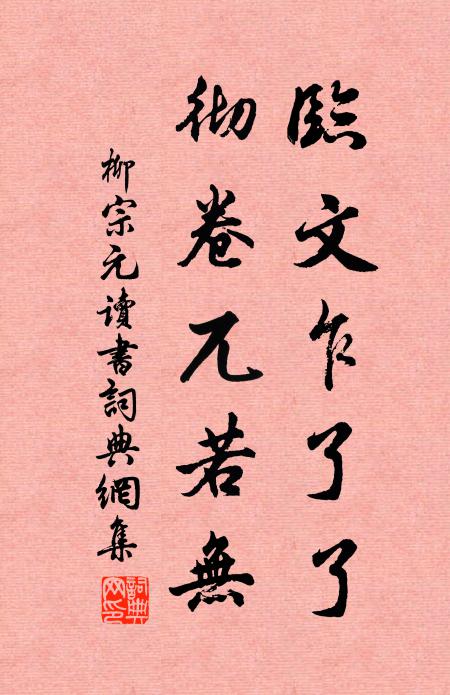 臨文乍了了
彻卷兀若無
柳宗元讀書詞典網集
詞典
网印